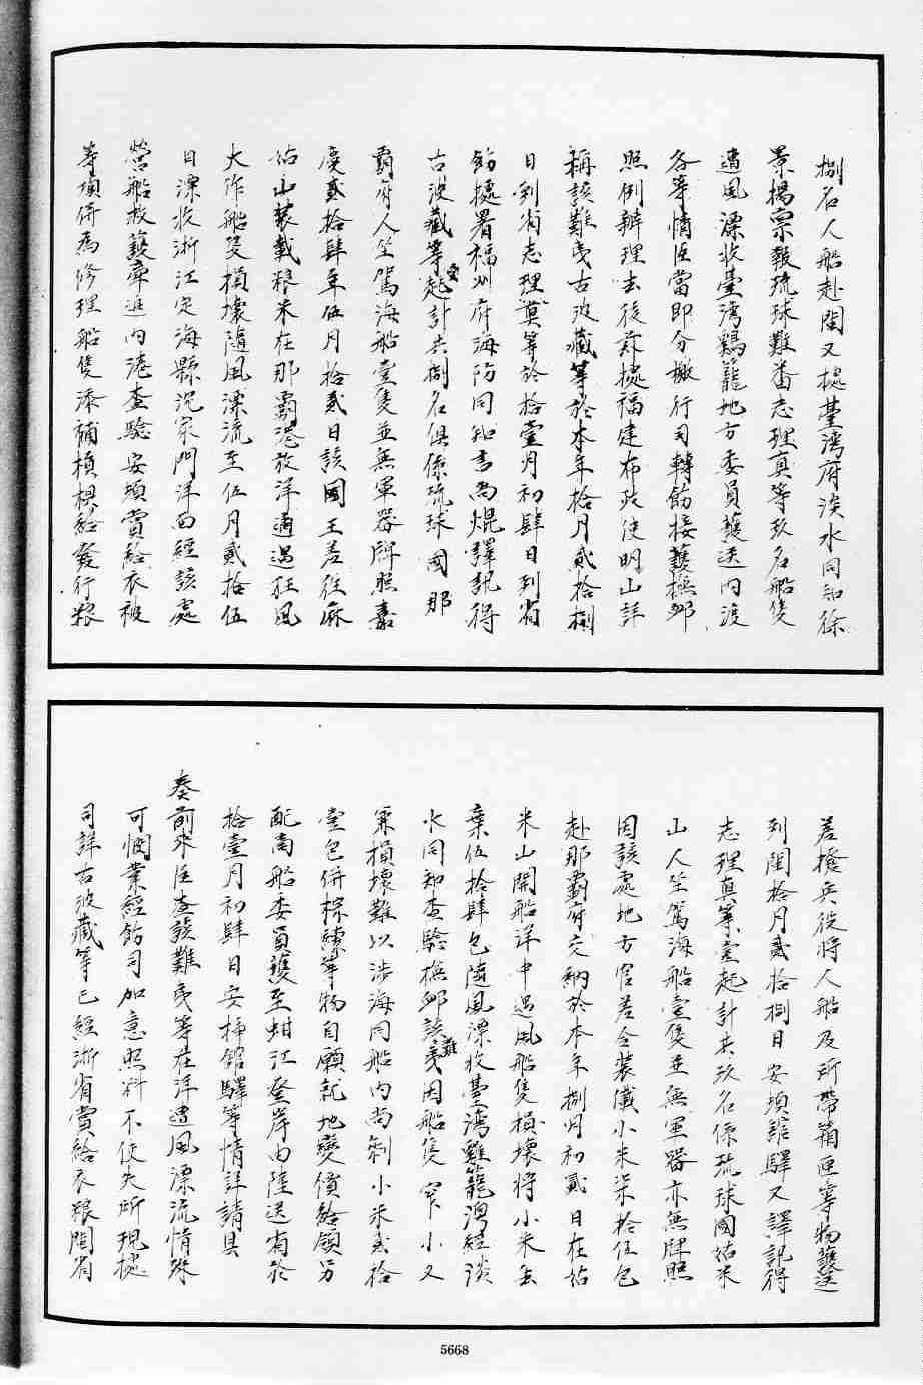 捌名人船赴閩又據臺灣府淡水同知徐
景揚稟報琉球難番志理真等玖名船隻
遭風漂收臺灣鷄籠地方委員護送內渡
各等情臣當即分檄行司轉飭接護撫卹
照例辦理去後茲據福建布政使明山詳
稱該難夷古波藏等於本年拾月貳拾捌
日到省志理真等於拾壹月初肆日到省
飭據署福州府海防同知書尚焜譯訊得
古波藏等壹起計共捌名俱係琉球國那
霸府人坐駕海船壹隻並無軍器牌照嘉
慶貳拾肆年伍月拾貳日該國王差往麻
姑山裝載粮米在那霸港放洋適遇狂風
大作船隻損壞隨風漂流至伍月貳拾伍
日漂收浙江定海縣沈家門洋面經該處
營船救護牽進內港查驗安頓賞給衣被
等項併為修理船隻添補槓椇給發行粮
差撥兵役將人船及所帶箱匣等物護送
到閩拾月貳拾捌日安頓館驛又譯訊得
志理真等壹起計共玖名係琉球國姑米
山人坐駕海船壹隻並無軍器亦無牌照
因該處地方官差令裝儎小米柒拾伍包
赴那霸府交納於本年捌月初貳日在姑
米山開船洋中遇風船隻損壞將小米丟
棄伍拾肆包隨風漂收臺灣雞籠灣經淡
水同知查驗撫卹該難夷因船隻窄小又
兼損壞難以涉海同船內尚剩小米貳拾
壹包併棕繚等物自願就地變價給領另
配商船委員護至蚶江登岸由陸送省於
拾壹月初肆日安插館驛等情詳請具
奏前來臣查該難夷等在洋遭風漂流情殊
可憫業經飭司加意照料不使失所現據
司詳古波藏等已經浙省賞給衣粮閩省
5668